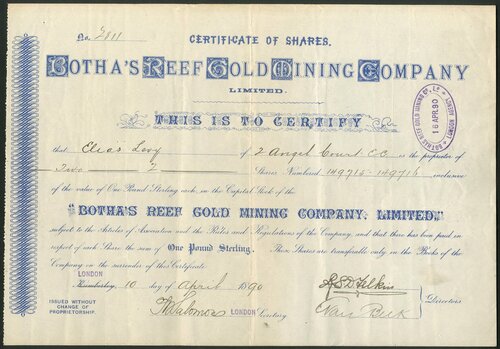 No. 2811
CERTIFICATE OF SHARES.
BOTHA'S REEF GOLD MINING COMPANY
LIMITED.
THIS IS TO CERTIFY
that Elias Levy of 2 Angel Court E.C. is the proprietor of
Two 2 Shares Numbered 149715-149716 inclusive
of the value of One Pound Sterling each, in the Capital Stock of the
"BOTHA'S REEF GOLD MINING COMPANY, LIMITED,"
subject to the Articles of Association and the Rules and Regulations of the Company, and that there has been paid in
respect of each Share the sum of One Pound Sterling. These Shares are transferable only in the Books of the
Company on the surrender of this Certificate.
LONDON
Kimberley, 10 day of April 1890
ISSUED WITHOUT
CHANGE OF
PROPRIETORSHIP.
LONDON Secretary
Directors
Van Beek
BOTHA'S REEF GOLD MINING CO. LD. LONDON
16 APR. 90